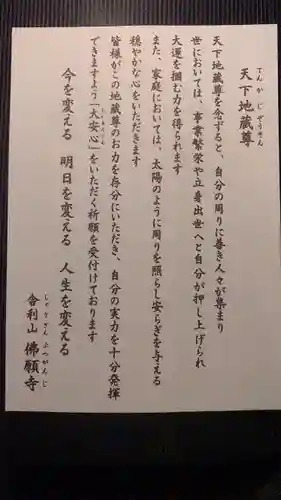 天下地蔵尊
てんかじぞうそん
天下地蔵尊を念ずると、自分の周りに善き人々が集まり
世においては、事業繁栄や立身出世へと自分が押し上げられ
大運を掴む力を得られます
また、家庭においては、太陽のように周りを照らし安らぎを与える
穏やかな心をいただきます
皆様がこの地蔵尊のお力を存分にいただき、自分の実力を十分発揮
できますよう「大安心」をいただく祈願を受付けております
今を変える 明日を変える 人生を変える
舎利山 佛願寺
しゃりさん ぶつがんじ